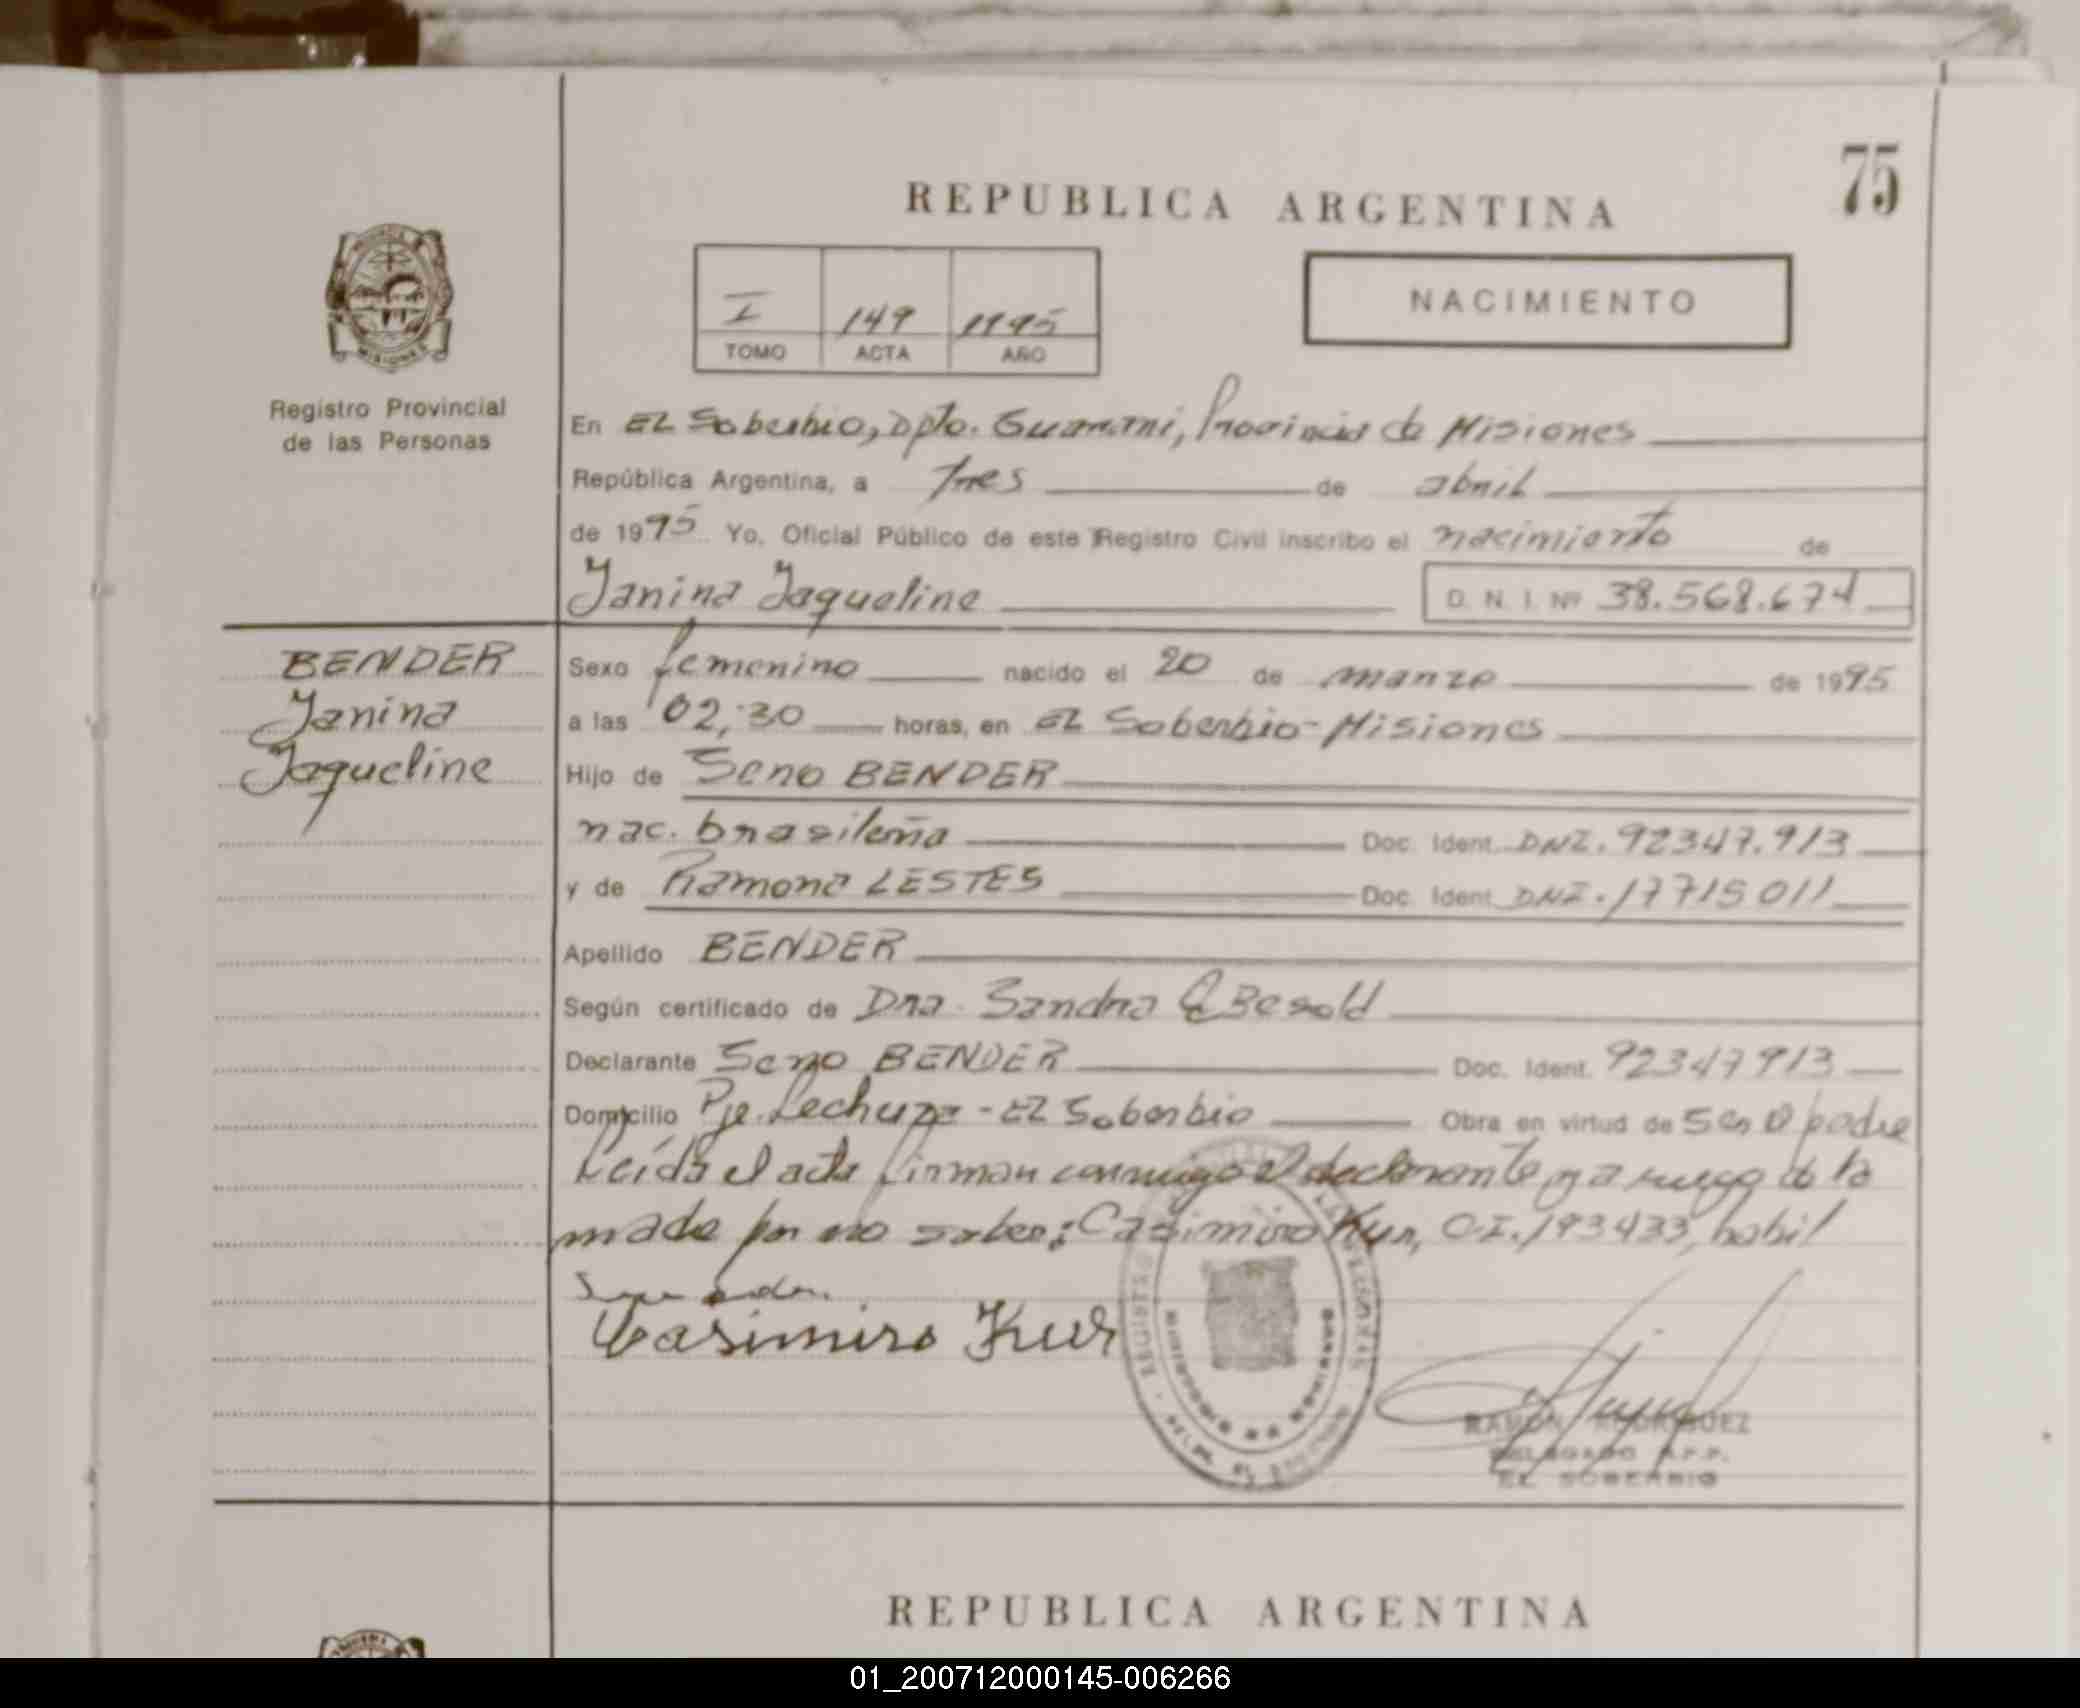 75
REPUBLICA ARGENTINA
I 149 1995
TOMO ACTA AÑO
NACIMIENTO
MISIONES
Registro Provincial
de las Personas
En EL Soberbio, Dpto. Guarani, Provincia de Misiones
República Argentina, a tres de abril
de 1995 Yo, Oficial Público de este Registro Civil inscribo el nacimiento de
Janina Jaqueline D. N. I. Nº 38.568.674
BENDER
Janina
Jaqueline
Sexo femenino nacido el 20 de marzo de 1995
a las 02,30 horas, en EL Soberbio-Misiones
Hijo de Seno BENDER
nac. brasileña Doc. Ident. DNI. 92347.913
y de Ramona LESTES Doc. Ident. DNI. 17715011
Apellido BENDER
Según certificado de Dra. Sandra Besold
Declarante Seno BENDER Doc. Ident. 92347913
Domicilio Pje. Lechuza - EL Soberbio Obra en virtud de Ser el padre
Leída el acta firman conmigo el declarante y a ruego de la
madre por no saber: Casimiro Kur, C.I. 193433, habil
Casimiro Kur
RAMON RODRIGUEZ
DELEGADO R.P.P.
EL SOBERBIO
REPUBLICA ARGENTINA
01_200712000145-006266